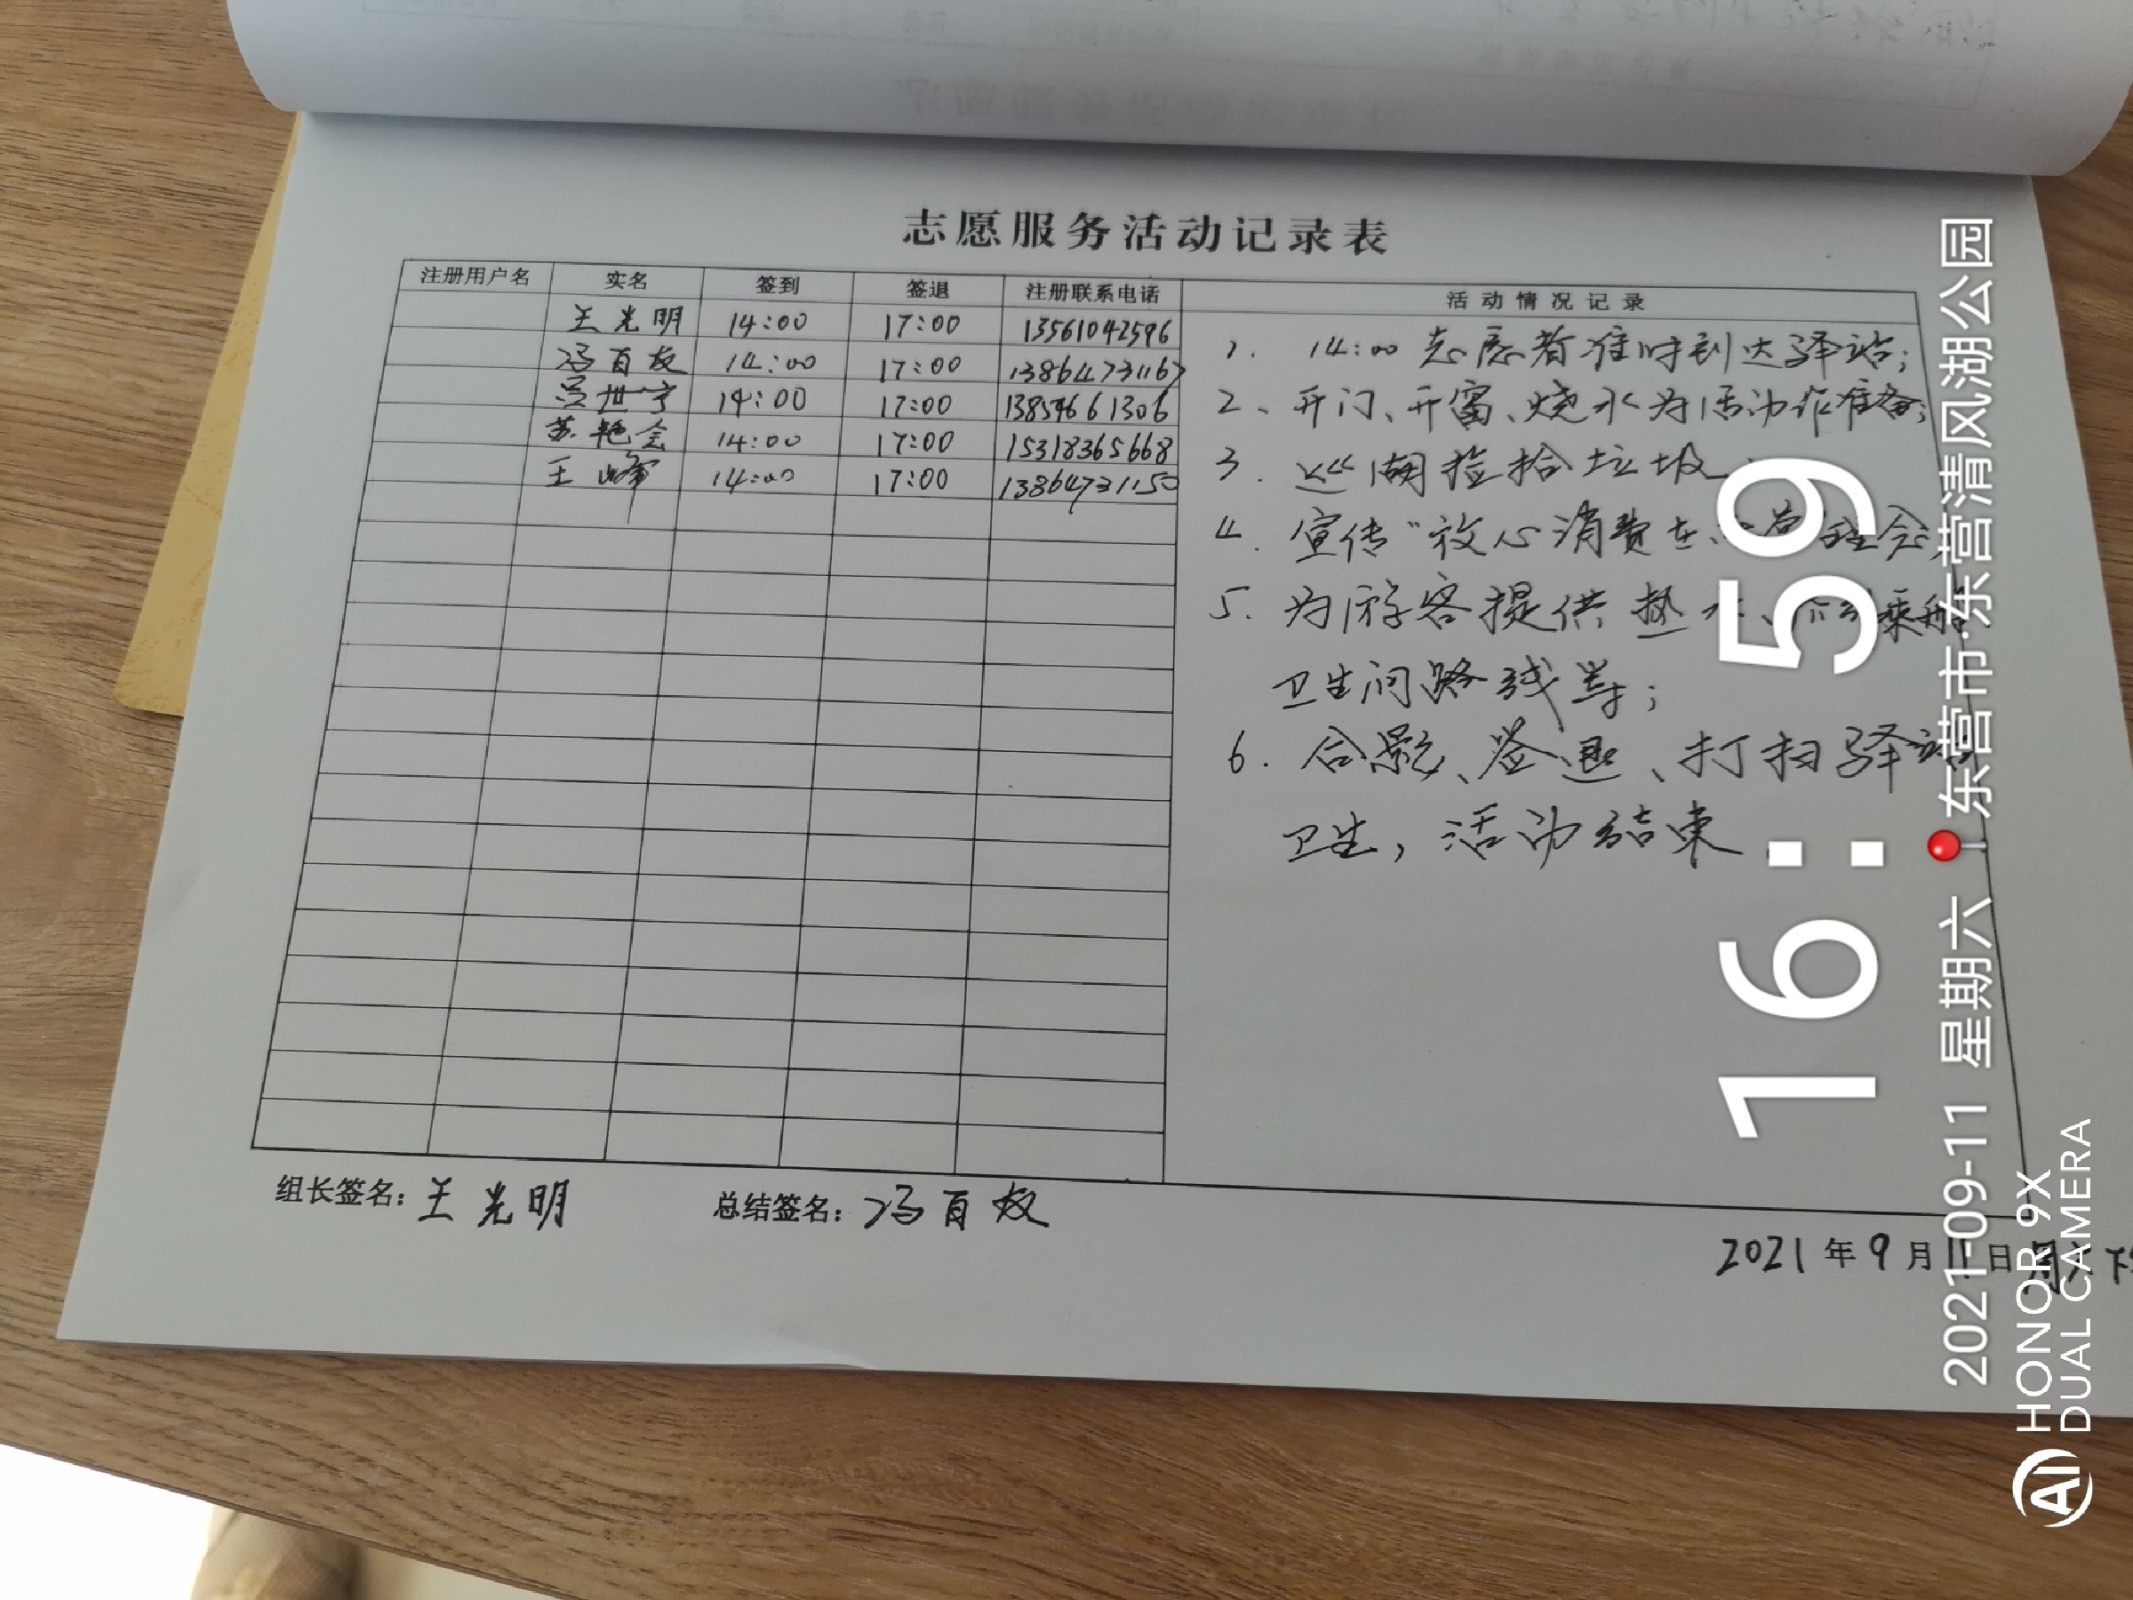 志愿服务活动记录表
注册用户名 实名 签到 签退 注册联系电话 活动情况记录
王光明 14:00 17:00 13561042596
冯百友 14:00 17:00 13864731167
吴世宁 14:00 17:00 13854661306
苏艳会 14:00 17:00 15318365668
王峰 14:00 17:00 13864731150
1. 14:00 志愿者准时到达驿站;
2、开门、开窗、烧水为活动作准备;
3. 巡湖捡拾垃圾
4. 宣传"放心消费在
5. 为游客提供热水、乘船
卫生间路线等;
6. 合影、签退、打扫驿站
卫生,活动结束
组长签名:王光明 总结签名:冯百友
2021年9月11日 周六下
16:59
2021-09-11 星期六 东营市·东营清风湖公园
AI HONOR 9X
DUAL CAMERA